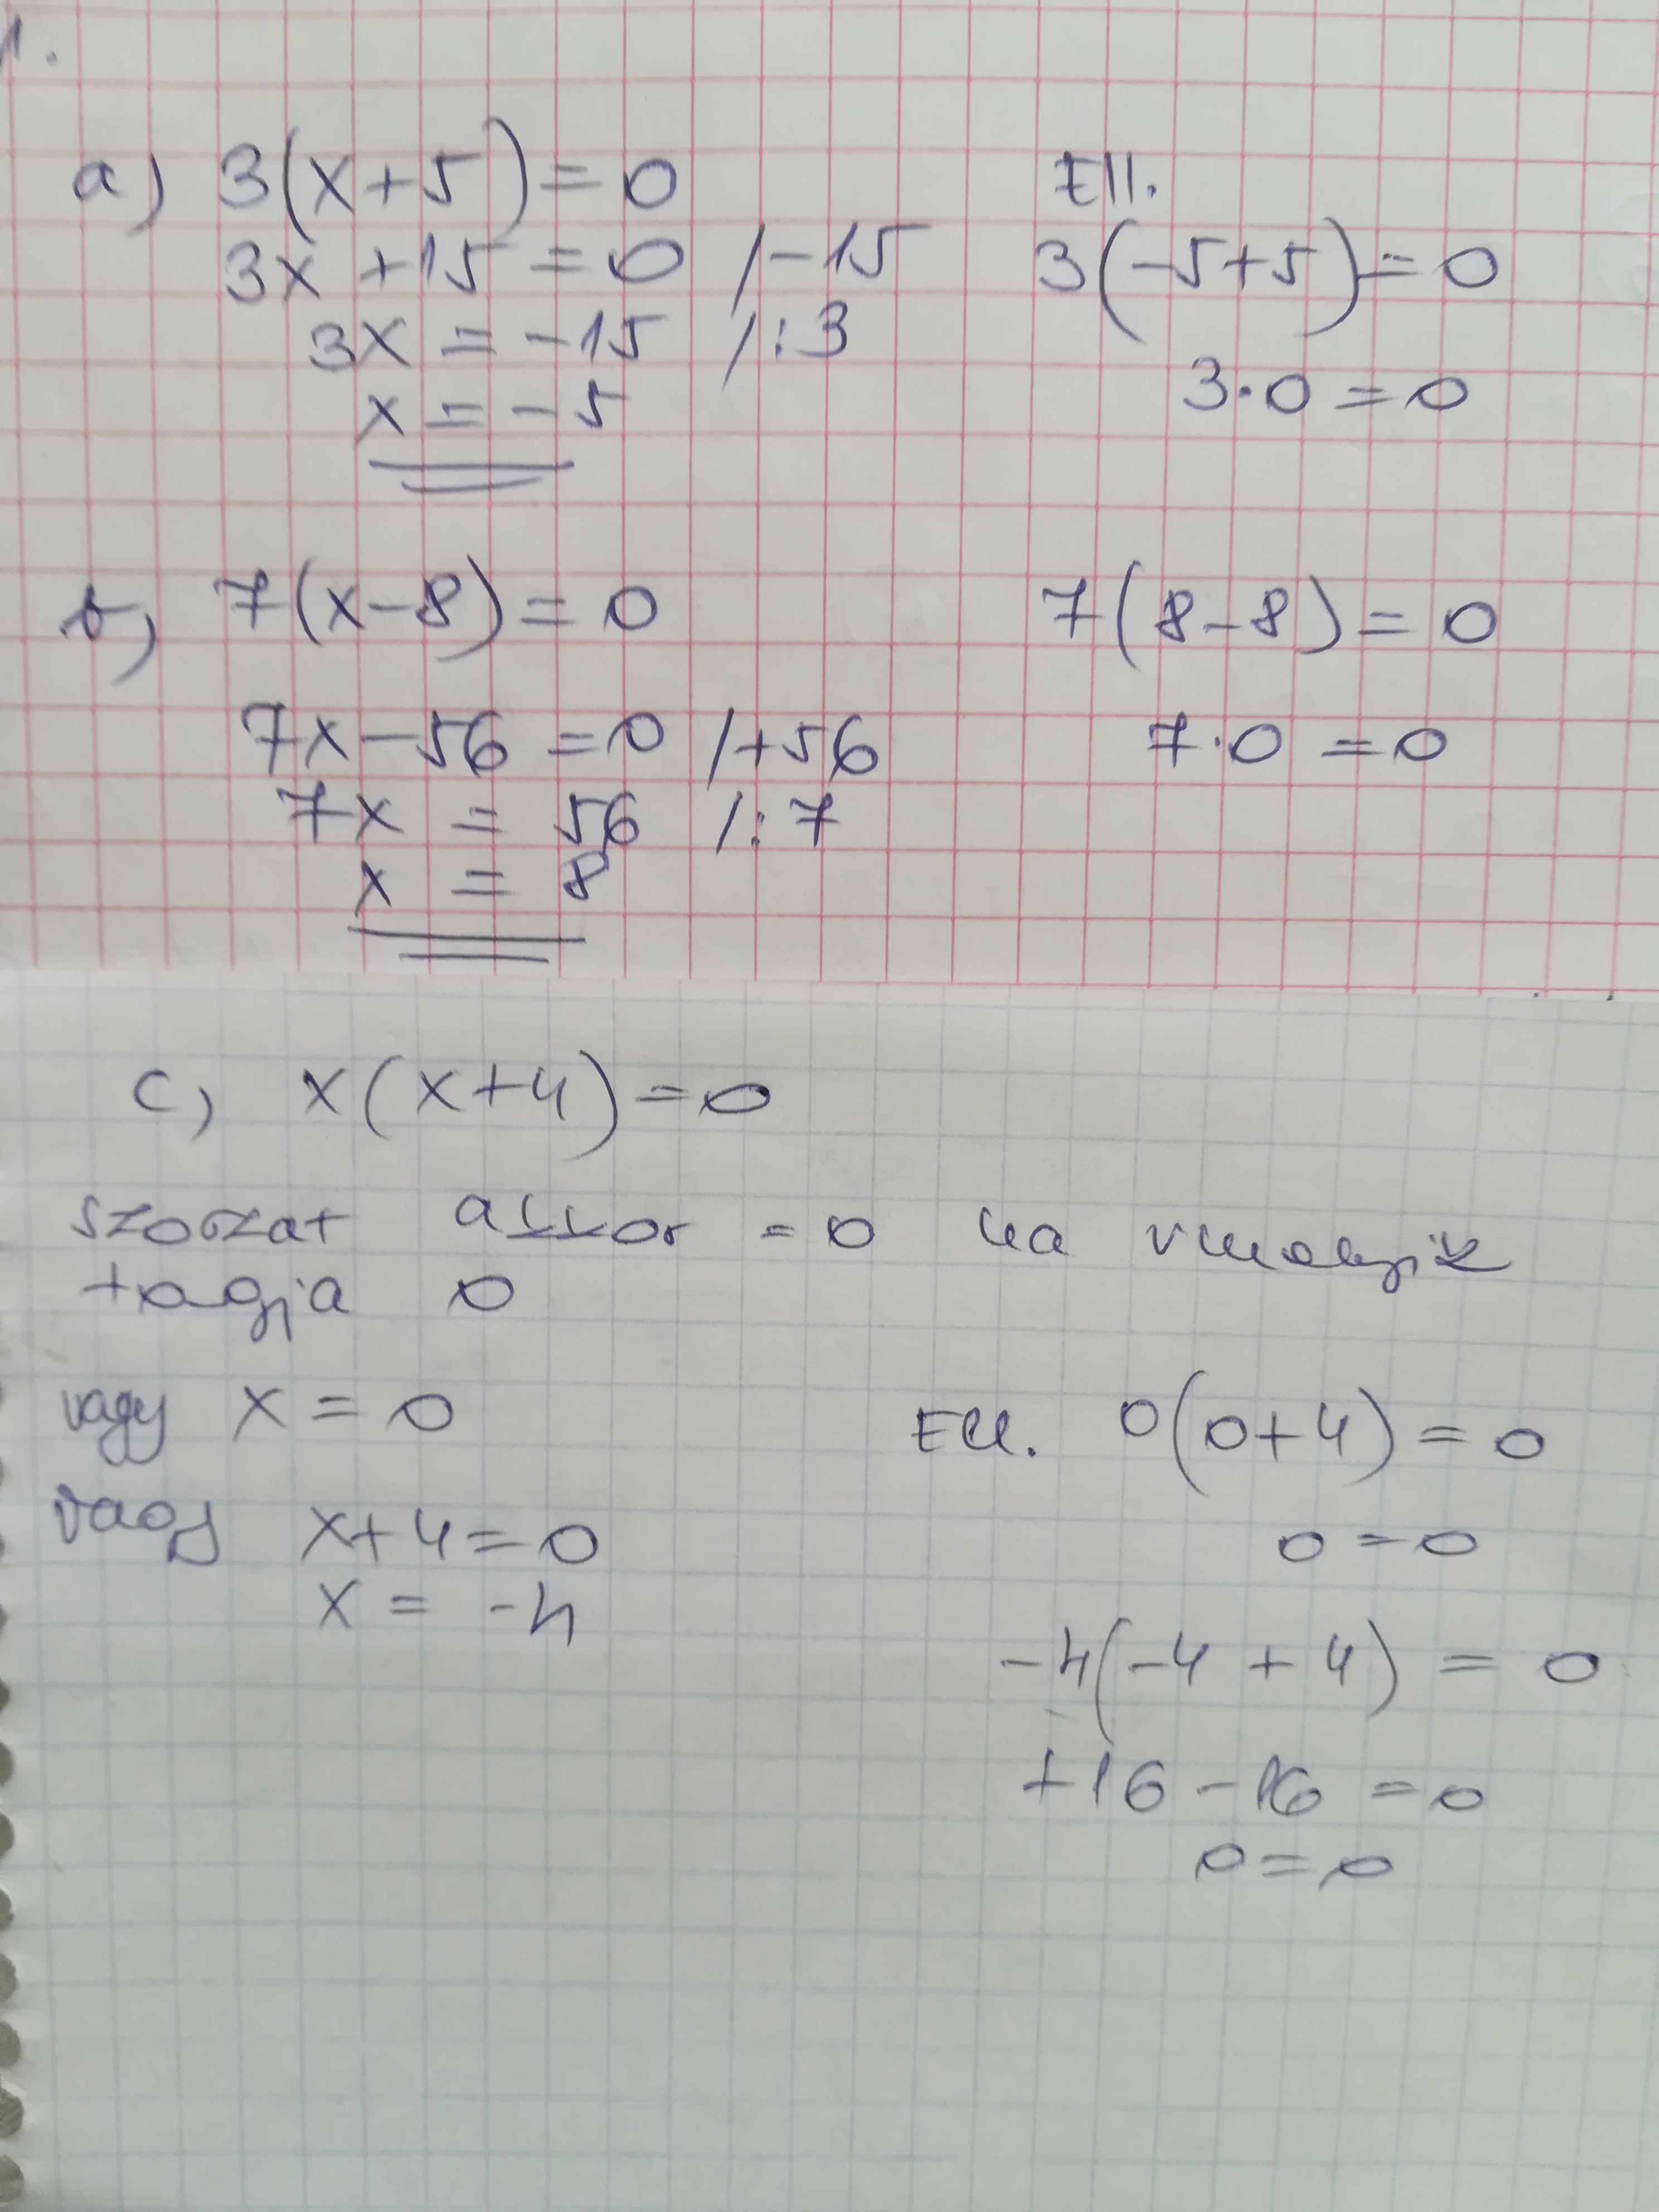 1.
a) 3(x+5)=0
3x+15=0 /-15
3x=-15 /:3
x=-5
Ell.
3(-5+5)=0
3·0=0
b) 7(x-8)=0
7x-56=0 /+56
7x=56 /:7
x=8
7(8-8)=0
7·0=0
c) x(x+4)=0
szorzat akkor =0 ha vmelyik
tagja 0
vagy x=0
vagy x+4=0
x=-4
Ell. 0(0+4)=0
0=0
-4(-4+4)=0
+16-16=0
0=0